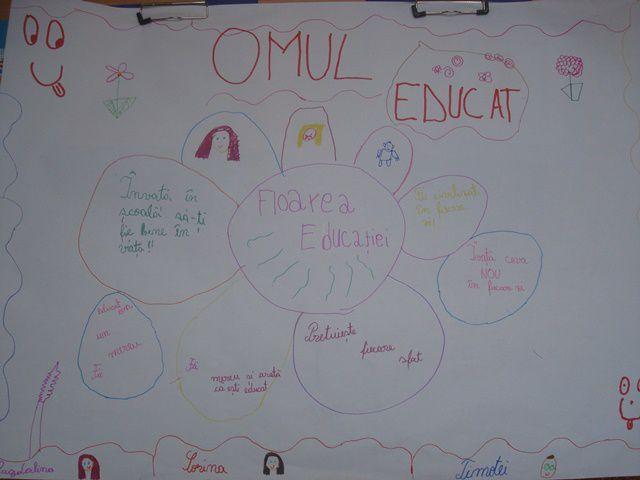 OMUL
EDUCAT
Învată în
școală să-ți
fie bine în
viață!!
Floarea
Educației
în fiecare
zi!
Învață ceva
NOU
în fiecare zi
educat
om
un
mereu
Fii
Fii
mereu și arată
ca ești educat
Prețuiește
fiecare
sfat
Magdalena
Sorina
Timotei